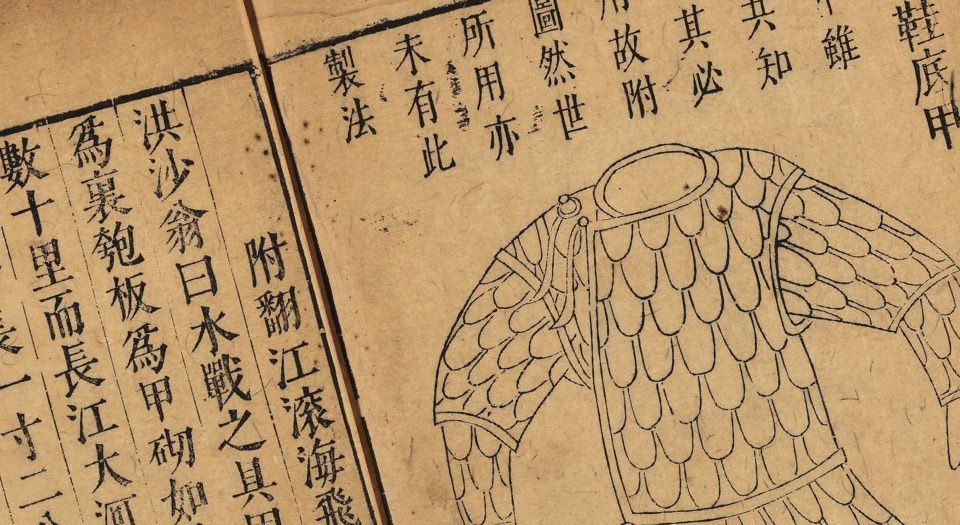 鞋底甲
雖
共知
其必
用故附
圖然世
所用亦
未有此
製法
附翻江滚海飛
洪沙翁曰水戰之具
爲裏匏板爲甲砌如
數十里而長江大河
長一寸二